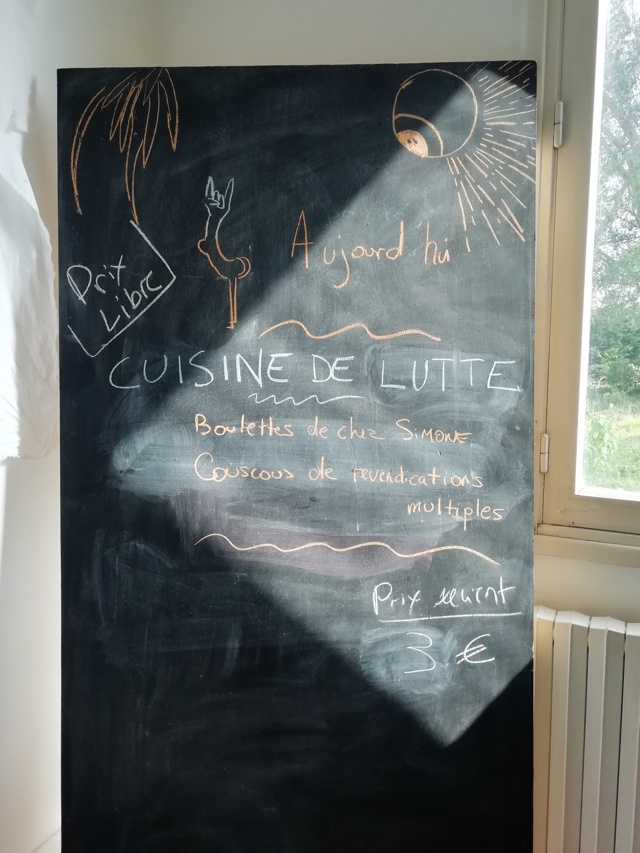 Prix
Libre
Aujourd'hui
CUISINE DE LUTTE
Boulettes de chez SIMONE
Couscous de revendications
multiples
Prix
3 €